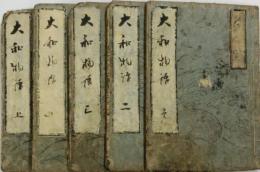 大和物語
大和物語 二
大和物語 三
大和物語
大和物語